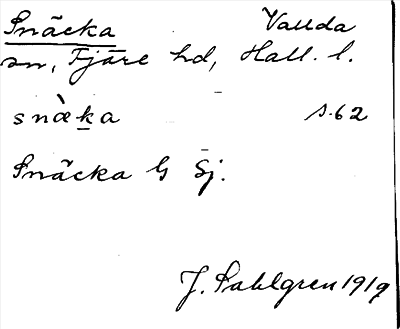 Snäcka Vallda
sn, Fjäre hd, Hall. l.
snæ̀ka s. 62
Snäcka G Sj.
J. Sahlgren 1919